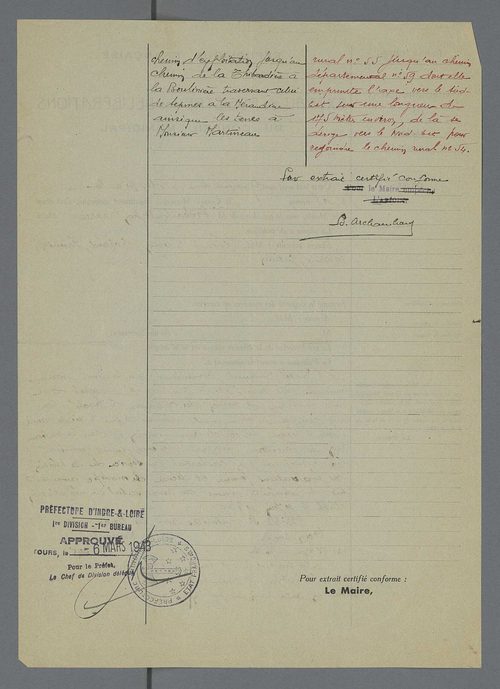 chemin d'exploitation jusqu'au
chemin de la
la Boulinière traversant celui
de termes à la
ainsi que les terres à
Monsieur Martineau
rural n° 55 jusqu'au chemin
départemental n° 59 dont elle
emprunte l'axe vers le Sud-
Est sur une longueur de
175 mètres environ, de là se
dirige vers le Nord-Est pour
rejoindre le chemin rural n° 54.
Pour extrait certifié conforme
le Maire
B. Archambault
PRÉFECTURE D'INDRE-&-LOIRE
1re DIVISION - 1er BUREAU
APPROUVÉ
TOURS, le 6 MARS 1943
Pour le Préfet,
Le Chef de Division délégué
ETAT FRANÇAIS
Pour extrait certifié conforme :
Le Maire,